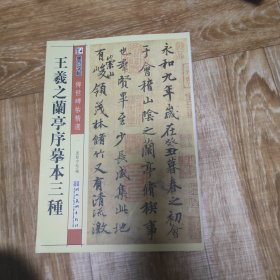 永和九年歲在癸丑暮春之初會
于會稽山陰之蘭亭脩稧事
也羣賢畢至少長咸集此地
崇山
有峻領茂林脩竹又有清流激
傳世碑帖精選
王羲之蘭亭序摹本三種